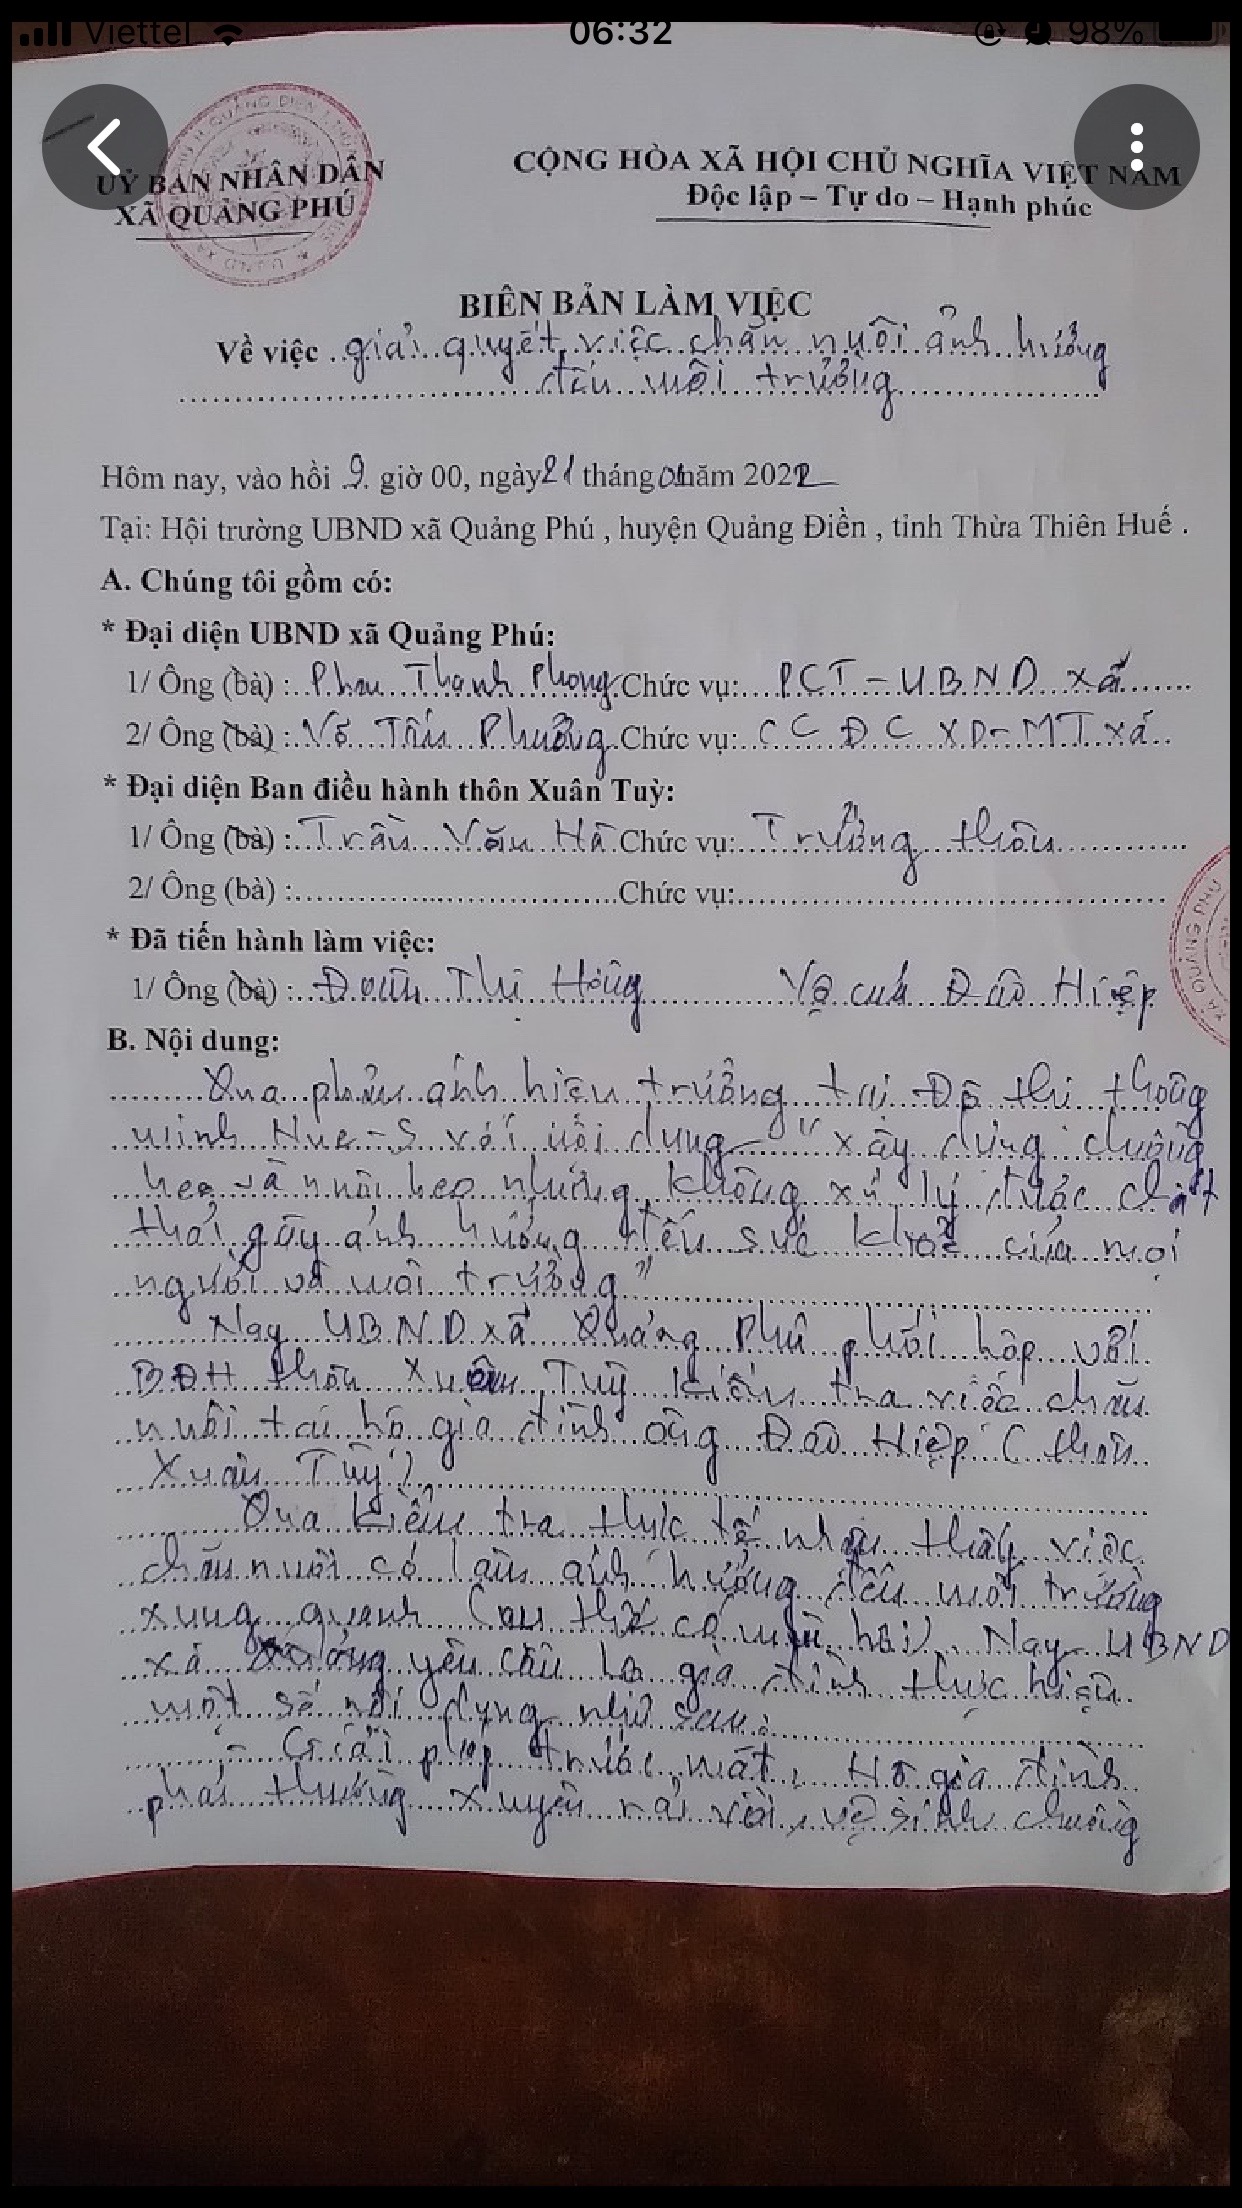 Viettel 06:32 98%
UỶ BAN NHÂN DÂN
XÃ QUẢNG PHÚ
CỘNG HÒA XÃ HỘI CHỦ NGHĨA VIỆT NAM
Độc lập – Tự do – Hạnh phúc
BIÊN BẢN LÀM VIỆC
Về việc giải quyết việc chăn nuôi ảnh hưởng
đến môi trường
Hôm nay, vào hồi 9 giờ 00, ngày 21 tháng 01 năm 2022
Tại: Hội trường UBND xã Quảng Phú , huyện Quảng Điền , tỉnh Thừa Thiên Huế .
A. Chúng tôi gồm có:
* Đại diện UBND xã Quảng Phú:
1/ Ông (bà) : Phan Thanh Phong Chức vụ: PCT - UBND xã
2/ Ông (bà) : Võ Tấn Phường Chức vụ: CC ĐC XD - MT xã
* Đại diện Ban điều hành thôn Xuân Tuỳ:
1/ Ông (bà) : Trần Văn Hà Chức vụ: Trưởng thôn
2/ Ông (bà) : Chức vụ:
* Đã tiến hành làm việc:
1/ Ông (bà) : Thị Hồng Vợ của Đào Hiệp
B. Nội dung:
Qua phản ánh hiện trường tại Đô thị thông
minh Hue-S với nội dung "xây dựng chuồng
heo và nuôi heo nhưng không xử lý được chất
thải gây ảnh hưởng đến sức khoẻ của mọi
người và môi trường"
Nay UBND xã Quảng Phú phối hợp với
BĐH thôn Xuân Tuỳ kiểm tra việc chăn
nuôi tại hộ gia đình ông Đào Hiệp (thôn
Xuân Tuỳ)
Qua kiểm tra thực tế nhận thấy việc
chăn nuôi có làm ảnh hưởng đến môi trường
xung quanh (cụ thể có mùi hôi). Nay UBND
xã yêu cầu hộ gia đình thực hiện
một số nội dung như sau:
- Giải pháp trước mắt, Hộ gia đình
phải thường xuyên rải vôi, vệ sinh chuồng